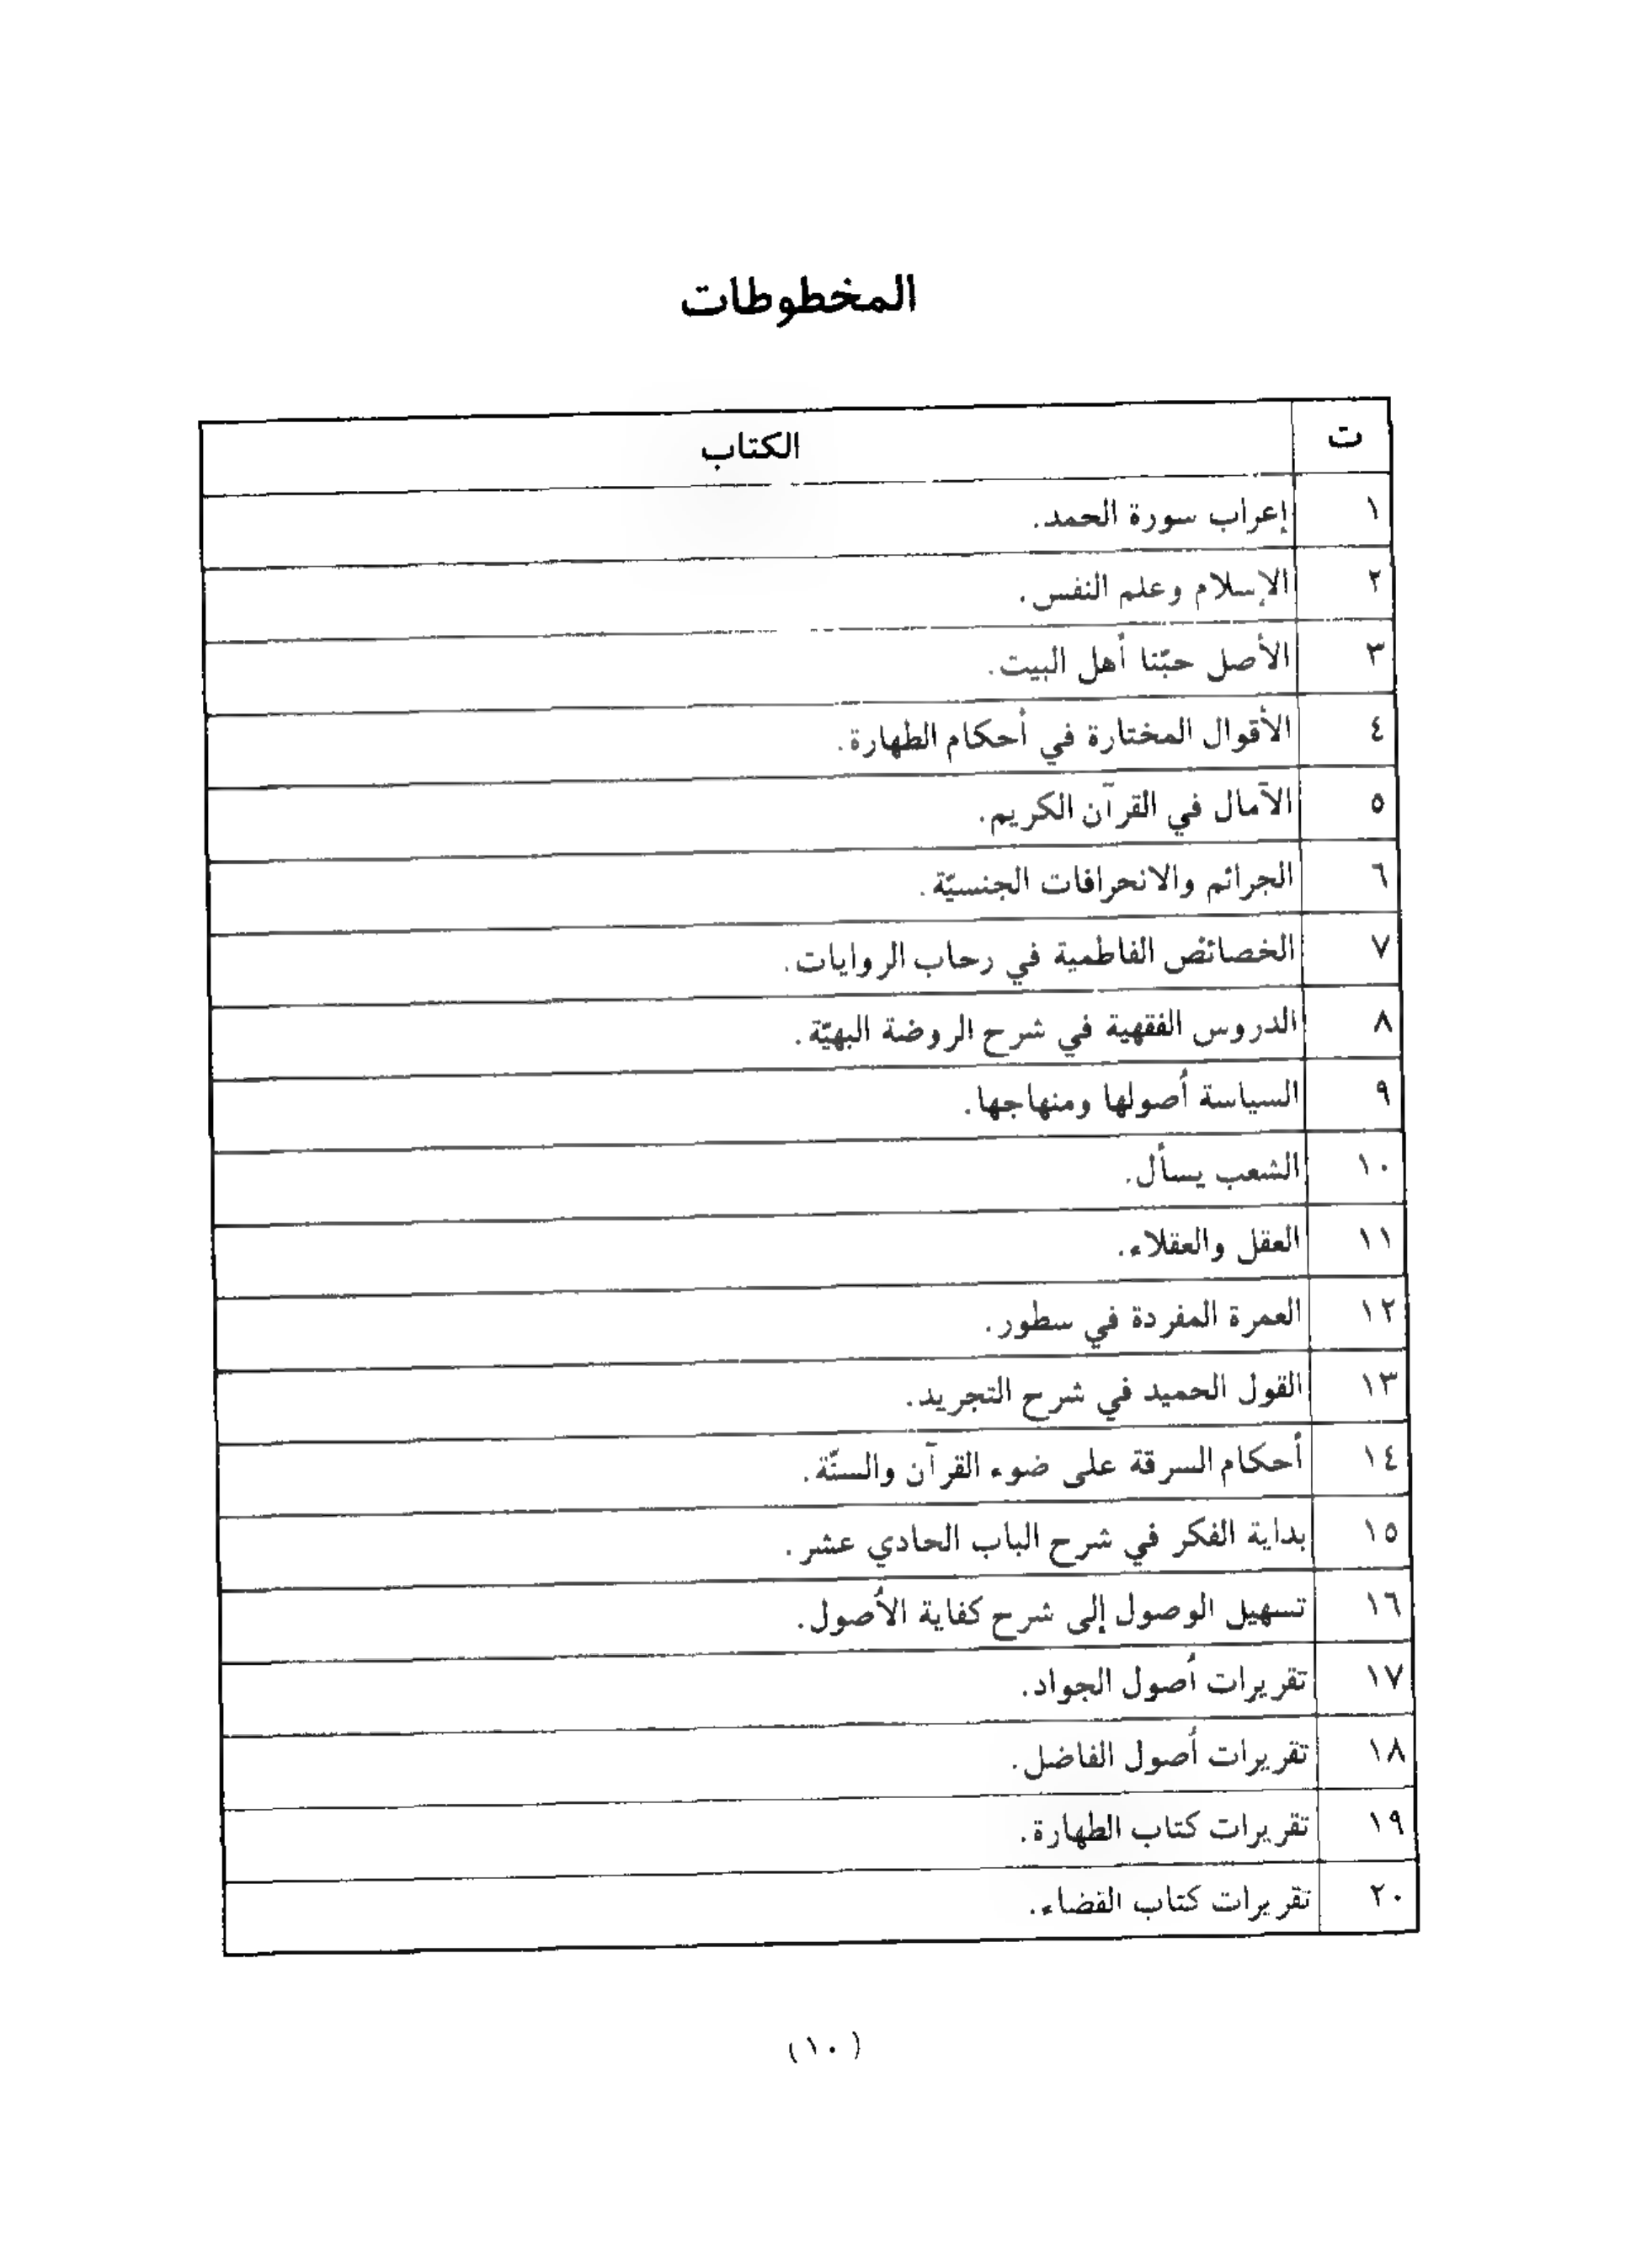 المخطوطات
ت الكتاب
١ إعراب سورة الحمد.
٢ الإسلام وعلم النفس.
٣ الأصل حبّنا أهل البيت.
٤ الأقوال المختارة في أحكام الطهارة.
٥ الآمال في القرآن الكريم.
٦ الجرائم والانحرافات الجنسيّة.
٧ الخصائص الفاطمية في رحاب الروايات.
٨ الدروس الفقهية في شرح الروضة البهيّة.
٩ السياسة أصولها ومنهاجها.
١٠ الشعب يسأل.
١١ العقل والعقلاء.
١٢ العمرة المفردة في سطور.
١٣ القول الحميد في شرح التجريد.
١٤ أحكام السرقة على ضوء القرآن والسنّة.
١٥ بداية الفكر في شرح الباب الحادي عشر.
١٦ تسهيل الوصول إلى شرح كفاية الأصول.
١٧ تقريرات أصول الجواد.
١٨ تقريرات أصول الفاضل.
١٩ تقريرات كتاب الطهارة.
٢٠ تقريرات كتاب القضاء.
(١٠)